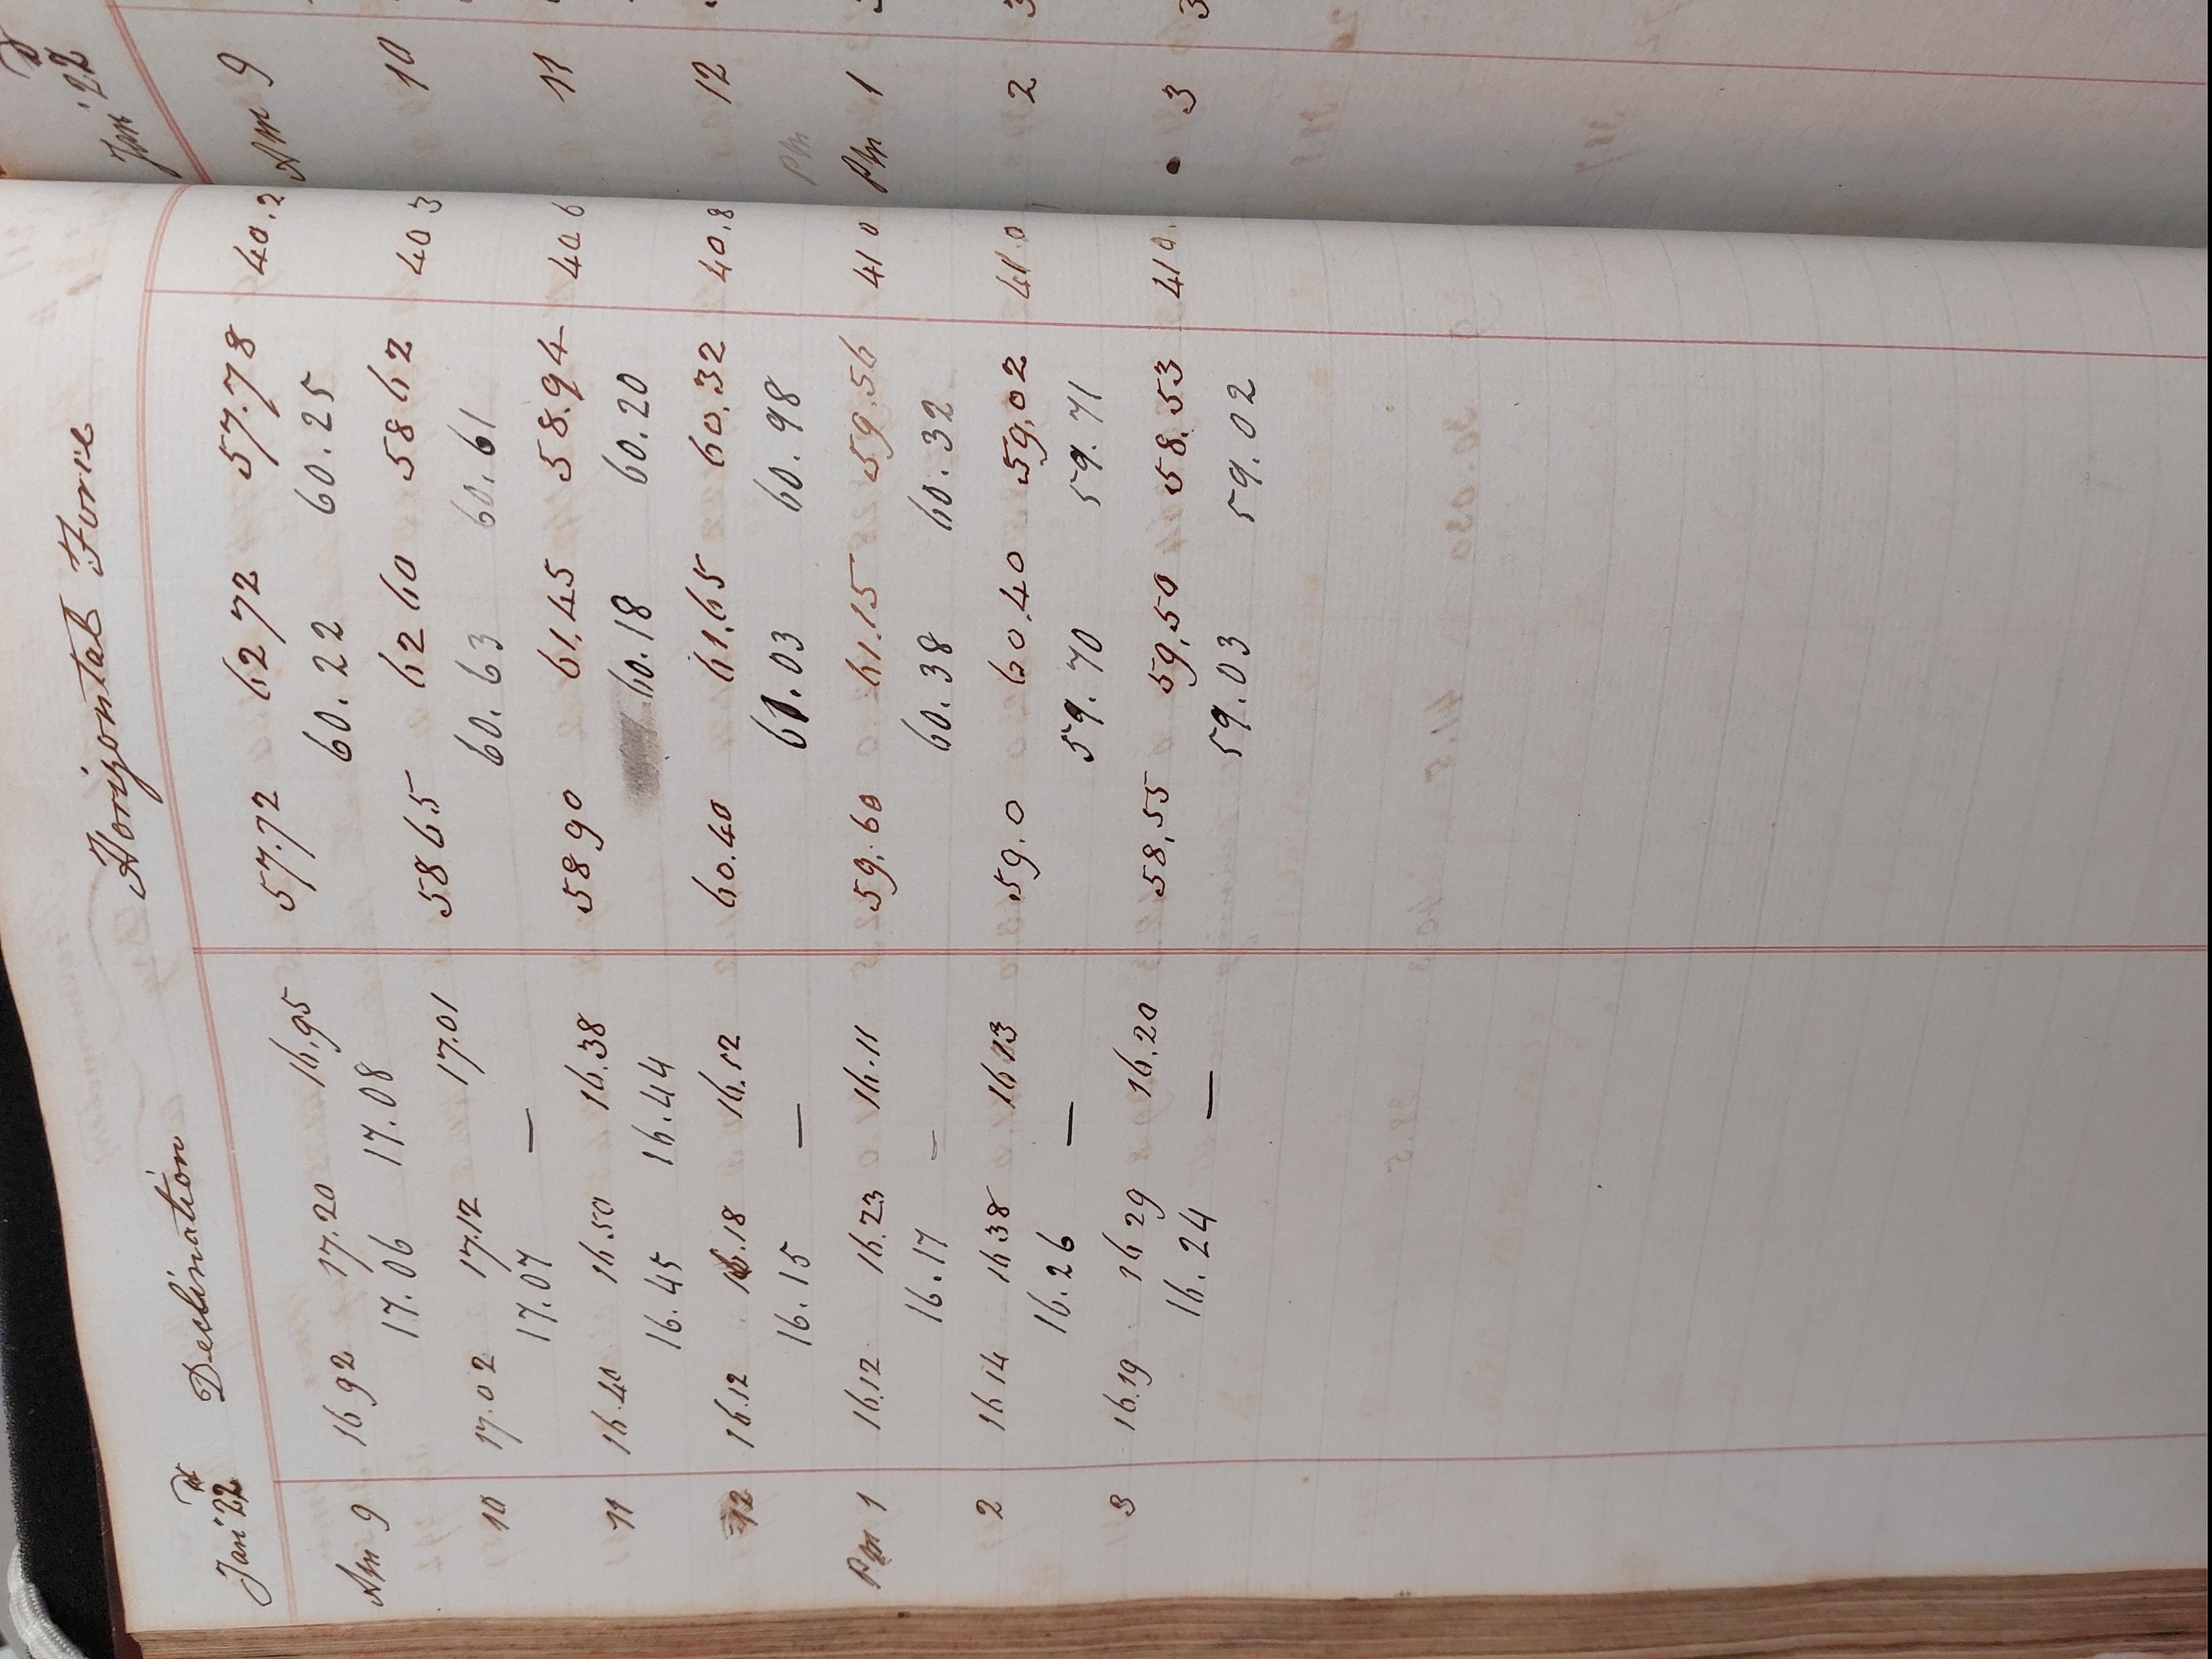 Horizontal Force
Jan' 22d Declination
Am 9 16 92 17.20 16.95 57.72 62 72 57.78 40.2
17.06 17.08 60.22 60.25
10 17.02 17.12 17.01 58 65 62 60 58 62 40 3
17.07 — 60.63 60.61
11 16.40 16.50 16.38 58 90 61.45 58.94 40 6
16.45 16.44 60.18 60.20
12 16.12 16.18 16.12 60.40 61.65 60.32 40.8
16.15 — 61.03 60.98
Pm 1 16.12 16.23 16.11 59.60 61.15 59.56 41 0
16.17 — 60.38 60.32
2 16 14 16 38 16 13 59.0 60.40 59.02 41 0
16.26 — 59.70 59.71
3 16.19 16 29 16.20 58,55 59,50 58.53 41 0.
16.24 — 59.03 59.02
Jan' 22d
Am 9
10
11
12
Pm
Pm 1
2 3
3 3